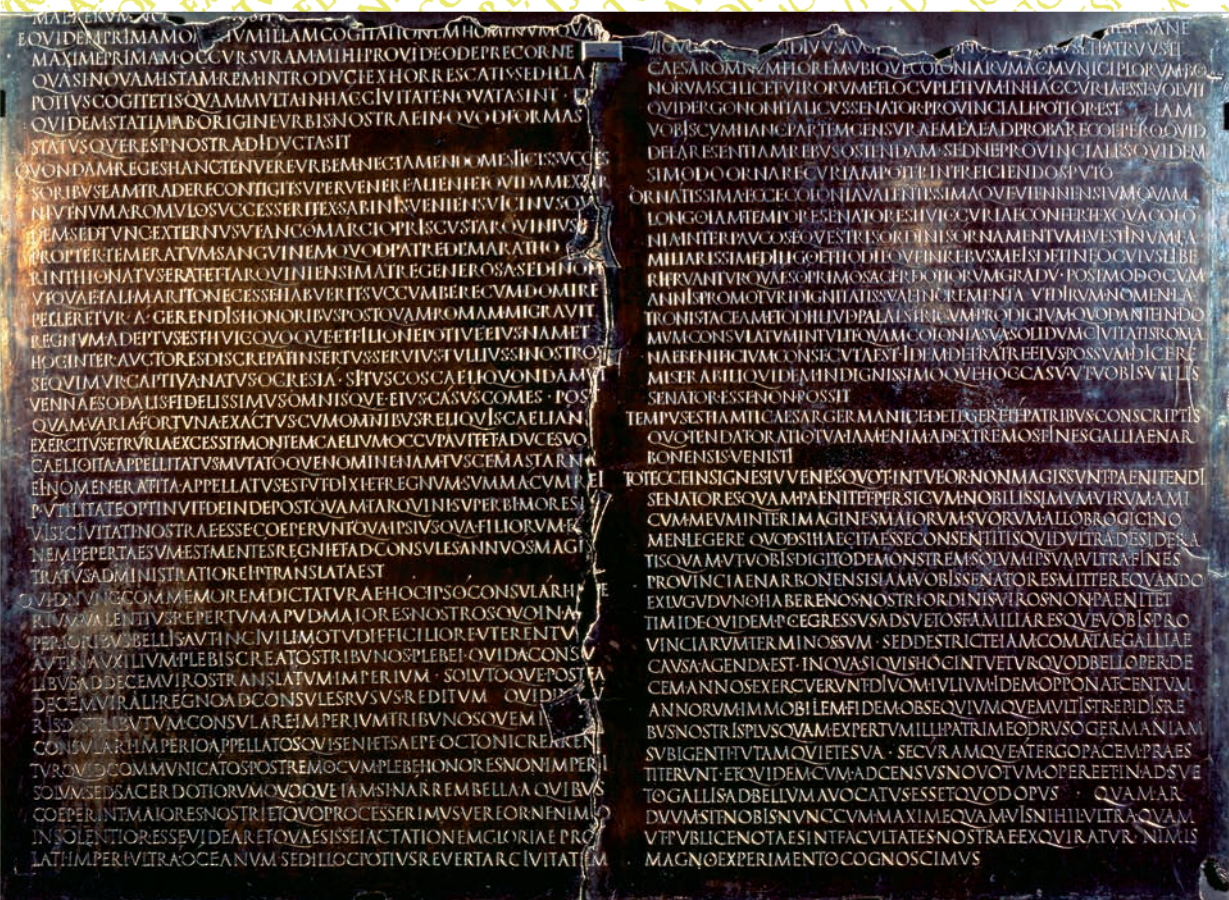 MAE RERVM NO
EQVIDEM PRIMAM OMNIVM ILLAM COGITATIONEM HOMINVM QVAM
MAXIME PRIMAM OCCVRSVRAM MIHI PROVIDEO DEPRECOR NE
QVASI NOVAM ISTAM REM INTRODVCI EXHORRESCATIS SED ILLA
POTIVS COGITETIS QVAM MVLTA IN HAC CIVITATE NOVATA SINT
QVIDEM STATIM AB ORIGINE VRBIS NOSTRAE IN QVOD FORMAS
STATVSQVE RES P NOSTRA DIDVCTA SIT
QVONDAM REGES HANC TENVERE VRBEM NEC TAMEN DOMESTICIS SVCCES
SORIBVS EAM TRADERE CONTIGIT SVPERVENERE ALIENI ET QVIDAM EXTER
NI VT NVMA ROMVLO SVCCESSERIT EX SABINIS VENIENS VICINVS QV
DEM SED TVNC EXTERNVS VT ANCO MARCIO PRISCVS TARQVINIVS
PROPTER TEMERATVM SANGVINEM QVOD PATRE DEMARATHO
RINTHIO NATVS ERAT ET TARQVINIENSI MATRE GENEROSA SED INOP
VT QVAE TALI MARITO NECESSE HABVERIT SVCCVMBERE CVM DOMI RE
PELLERETVR A GERENDIS HONORIBVS POSTQVAM ROMAM MIGRAVIT
REGNVM ADEPTVS EST HVIC QVOQVE ET FILIO NEPOTIVE EIVS NAM ET
HOC INTER AVCTORES DISCREPAT INSERTVS SERVIVS TVLLIVS SI NOSTROS
SEQVIMVR CAPTIVA NATVS OCRESIA SI TVSCOS CAELI QVONDAM VI
VENNAE SODALIS FIDELISSIMVS OMNISQVE EIVS CASVS COMES POST
QVAM VARIA FORTVNA EXACTVS CVM OMNIBVS RELIQVIS CAELIANI
EXERCITVS ETRVRIA EXCESSIT MONTEM CAELIVM OCCVPAVIT ET A DVCE SVO
CAELIO ITA APPELLITATVS MVTATOQVE NOMINE NAM TVSCE MASTARNA
EI NOMEN ERAT ITA APPELLATVS EST VT DIXI ET REGNVM SVMMA CVM REI
P VTILITATE OPTINVIT DEINDE POSTQVAM TARQVINI SVPERBI MORES I
VISI CIVITATI NOSTRAE ESSE COEPERVNT QVA IPSIVS QVA FILIORVM E
NEMPE PERTAESVM EST MENTES REGNI ET AD CONSVLES ANNVOS MAGI
TRATVS ADMINISTRATIO REI P TRANSLATA EST
QVID NVNC COMMEMOREM DICTATVRAE HOC IPSO CONSVLARI IMPE
RIVM VALENTIVS REPERTVM APVD MAIORES NOSTROS QVO IN AS
PERIORIBVS BELLIS AVT IN CIVILI MOTV DIFFICILIORE VTERENTVR
AVT IN AVXILIVM PLEBIS CREATOS TRIBVNOS PLEBEI QVID A CONSV
LIBVS AD DECEMVIROS TRANSLATVM IMPERIVM SOLVTOQVE POSTEA
DECEMVIRALI REGNO AD CONSVLES RVSVS REDITVM QVID IN
RIS DISTRIBVTVM CONSVLARE IMPERIVM TRIBVNOSQVE MI
CONSVLARI IMPERIO APPELLATOS QVI SENI ET SAEPE OCTONI CREAREN
TVR QVID COMMVNICATOS POSTREMO CVM PLEBE HONORES NON IMPERI
SOLVM SED SACERDOTIORVM QVOQVE IAM SI NARREM BELLA A QVIBVS
COEPERINT MAIORES NOSTRI ET QVO PROCESSERIMVS VEREOR NE NIMIO
INSOLENTIOR ESSE VIDEAR ET QVAESISSE IACTATIONEM GLORIAE PRO
LATI IMPERI VLTRA OCEANVM SED ILLOC POTIVS REVERTAR CIVITATEM
EST SANE
NOVO DIVVS AVG PATRVVS TI
CAESAR OMNEM FLOREM VBIQVE COLONIARVM AC MVNICIPIORVM BO
NORVM SCILICET VIRORVM ET LOCVPLETIVM IN HAC CVRIA ESSE VOLVIT
QVID ERGO NON ITALICVS SENATOR PROVINCIALI POTIOR EST IAM
VOBIS CVM HANC PARTEM CENSVRAE MEAE ADPROBARE COEPERO QVID
DE EA RE SENTIAM REBVS OSTENDAM SED NE PROVINCIALES QVIDEM
SI MODO ORNARE CVRIAM POTERINT REICIENDOS PVTO
ORNATISSIMA ECCE COLONIA VALENTISSIMAQVE VIENNENSIVM QVAM
LONGO IAM TEMPORE SENATORES HVIC CVRIAE CONFERT EX QVA COLO
NIA INTER PAVCOS EQVESTRIS ORDINIS ORNAMENTVM L VESTINVM FA
MILIARISSIME DILIGO ET HODIEQVE IN REBVS MEIS DETINEO CVIVS LIBE
RI FRVANTVR QVAESO PRIMO SACERDOTIORVM GRADV POST MODO CVM
ANNIS PROMOTVRI DIGNITATIS SVAE INCREMENTA VT DIRVM NOMEN LA
TRONIS TACEAM ET ODI ILLVD PALAESTRICVM PRODIGIVM QVOD ANTE IN DO
MVM CONSVLATVM INTVLIT QVAM COLONIA SVA SOLIDVM CIVITATIS ROMA
NAE BENIFICIVM CONSECVTA EST IDEM DE FRATRE EIVS POSSVM DICERE
MISERABILI QVIDEM INDIGNISSIMOQVE HOC CASV VT VOBIS VTILIS
SENATOR ESSE NON POSSIT
TEMPVS EST IAM TI CAESAR GERMANICE DETEGERE TE PATRIBVS CONSCRIPTIS
QVO TENDAT ORATIO TVA IAM ENIM AD EXTREMOS FINES GALLIAE NAR
BONENSIS VENISTI
TOT ECCE INSIGNES IVVENES QVOT INTVEOR NON MAGIS SVNT PAENITENDI
SENATORES QVAM PAENITET PERSICVM NOBILISSIMVM VIRVM AMI
CVM MEVM INTER IMAGINES MAIORVM SVORVM ALLOBROGICI NO
MEN LEGERE QVOD SI HAEC ITA ESSE CONSENTITIS QVID VLTRA DESIDERA
TIS QVAM VT VOBIS DIGITO DEMONSTREM SOLVM IPSVM VLTRA FINES
PROVINCIAE NARBONENSIS IAM VOBIS SENATORES MITTERE QVANDO
EX LVGVDVNO HABERE NOS NOSTRI ORDINIS VIROS NON PAENITET
TIMIDE QVIDEM P C EGRESSVS ADSVETOS FAMILIARESQVE VOBIS PRO
VINCIARVM TERMINOS SVM SED DESTRICTE IAM COMATAE GALLIAE
CAVSA AGENDA EST IN QVA SI QVIS HOC INTVETVR QVOD BELLO PER DE
CEM ANNOS EXERCVERVNT DIVOM IVLIVM IDEM OPPONAT CENTVM
ANNORVM IMMOBILEM FIDEM OBSEQVIVMQVE MVLTIS TREPIDIS RE
BVS NOSTRIS PLVS QVAM EXPERTVM ILLI PATRI MEO DRVSO GERMANIAM
SVBIGENTI TVTAM QVIETE SVA SECVRAMQVE A TERGO PACEM PRAES
TITERVNT ET QVIDEM CVM AD CENSVS NOVO TVM OPERE ET INADSVE
TO GALLIS AD BELLVM AVOCATVS ESSET QVOD OPVS QVAM AR
DVVM SIT NOBIS NVNC CVM MAXIME QVAMVIS NIHIL VLTRA QVAM
VT PVBLICE NOTAE SINT FACVLTATES NOSTRAE EXQVIRATVR NIMIS
MAGNO EXPERIMENTO COGNOSCIMVS